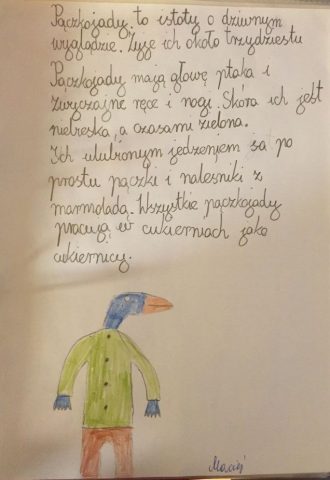 Pączkojady, to istoty o dziwnym
wyglądzie. Żyje ich około trzydziestu
Pączkojady mają głowę ptaka i
zwyczajne ręce i nogi. Skóra ich jest
niebieska, a czasami zielona.
Ich ulubionym jedzeniem są po
prostu pączki i naleśniki z
marmoladą. Wszystkie pączkojady
pracują w cukierniach jako
cukiernicy.
Maciej